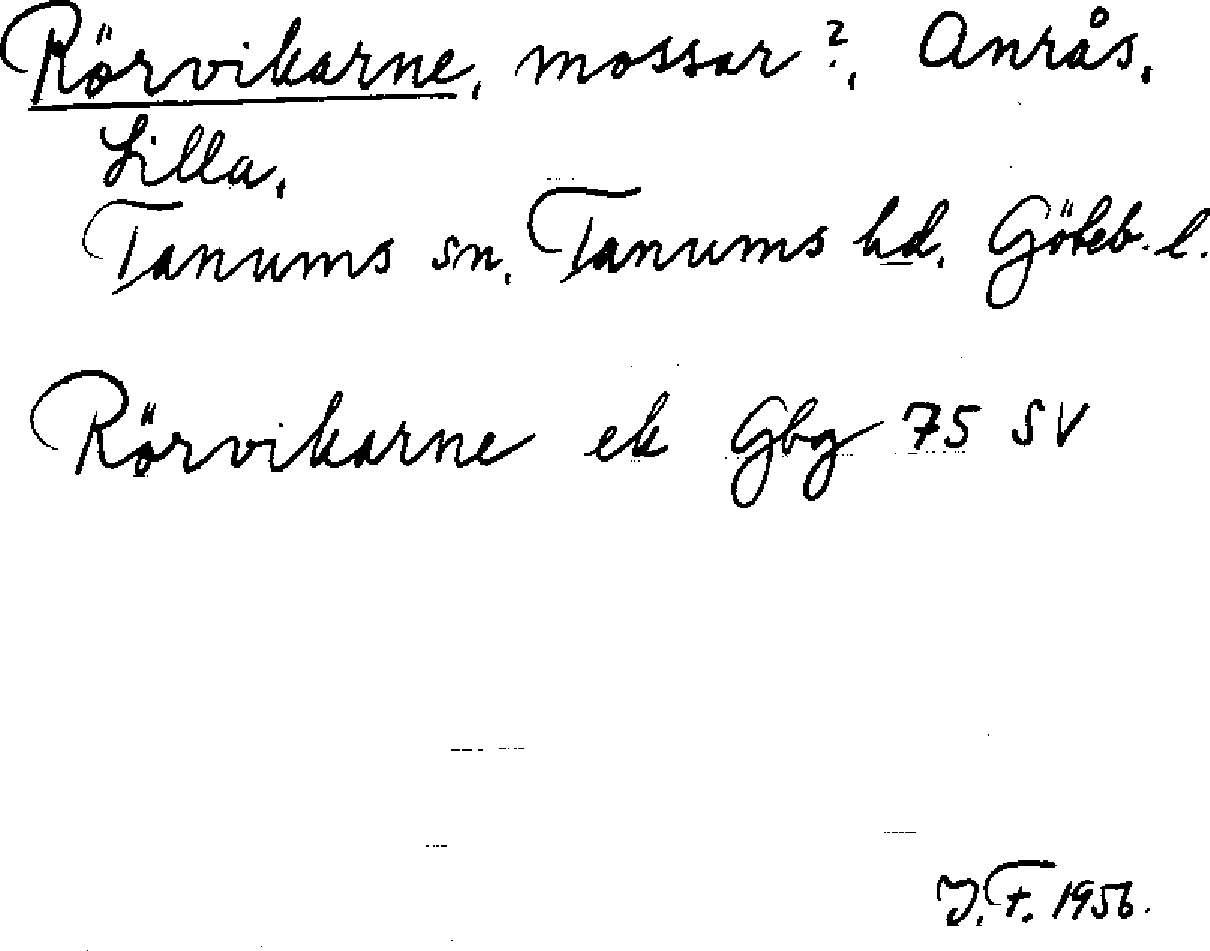 Rörvikarne, mossar?, Anrås,
Lilla,
Tanums sn, Tanums hd, Göteb. l.
Rörvikarne ek Gbg 75 SV
J.F. 1956.